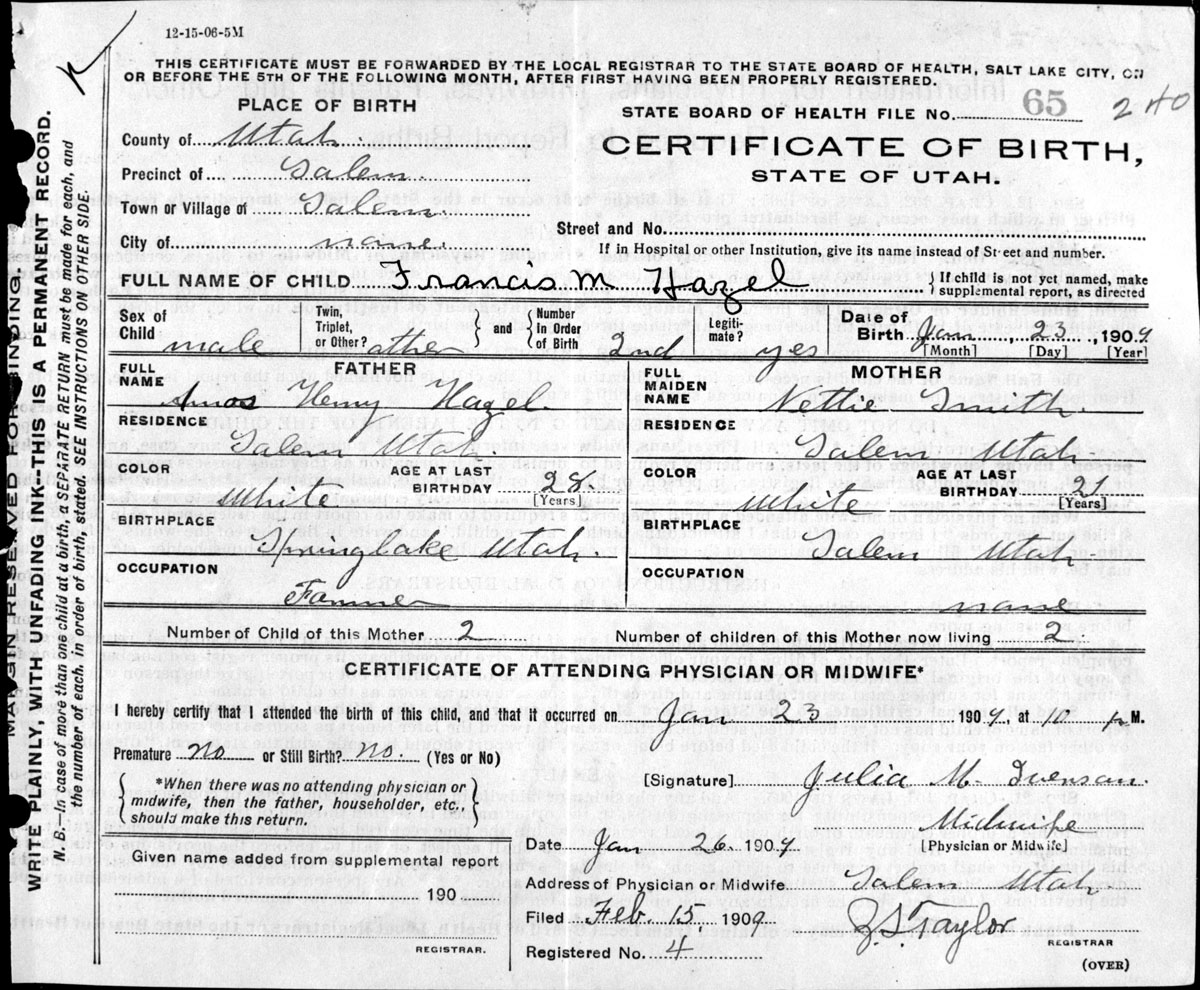 12-15-06-5M
THIS CERTIFICATE MUST BE FORWARDED BY THE LOCAL REGISTRAR TO THE STATE BOARD OF HEALTH, SALT LAKE CITY, ON
OR BEFORE THE 5TH OF THE FOLLOWING MONTH, AFTER FIRST HAVING BEEN PROPERLY REGISTERED.
PLACE OF BIRTH
STATE BOARD OF HEALTH FILE No. 65 240
County of Utah.
CERTIFICATE OF BIRTH,
Precinct of Salem.
STATE OF UTAH.
Town or Village of Salem.
Street and No.
City of none.
If in Hospital or other Institution, give its name instead of Street and number.
FULL NAME OF CHILD Francis M Hazel { If child is not yet named, make supplemental report, as directed
Sex of Child male Twin, Triplet, or Other? other } and { Number In Order of Birth 2nd Legitimate? yes Date of Birth Jan 23, 1909
[Month] [Day] [Year]
FULL NAME FATHER
Amos Henry Hazel.
RESIDENCE
Salem Utah.
COLOR White AGE AT LAST BIRTHDAY 28 [Years]
BIRTHPLACE
Springlake Utah.
OCCUPATION
Farmer
FULL MAIDEN NAME MOTHER
Nettie Smith.
RESIDENCE
Salem Utah.
COLOR White AGE AT LAST BIRTHDAY 21 [Years]
BIRTHPLACE
Salem Utah.
OCCUPATION
none
Number of Child of this Mother 2 Number of children of this Mother now living 2.
CERTIFICATE OF ATTENDING PHYSICIAN OR MIDWIFE*
I hereby certify that I attended the birth of this child, and that it occurred on Jan 23 1909, at 10 p M.
Premature No or Still Birth? No. (Yes or No)
{ *When there was no attending physician or midwife, then the father, householder, etc., should make this return. }
[Signature] Julia M. Swenson.
Midwife
[Physician or Midwife]
Date Jan 26 1909
Given name added from supplemental report
190
REGISTRAR.
Address of Physician or Midwife Salem Utah
Filed Feb. 15. 1909 Z. S. Taylor
REGISTRAR
Registered No. 4
(OVER)
MARGIN RESERVED FOR BINDING.
WRITE PLAINLY, WITH UNFADING INK--THIS IS A PERMANENT RECORD.
N. B.—In case of more than one child at a birth, a SEPARATE RETURN must be made for each, and
the number of each, in order of birth, stated. SEE INSTRUCTIONS ON OTHER SIDE.